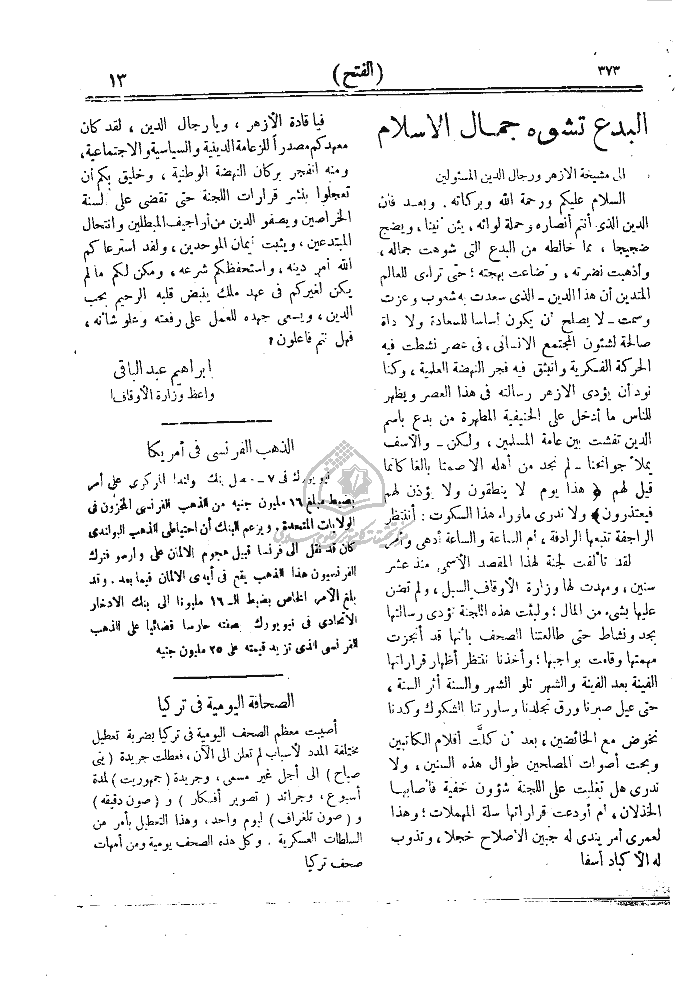 ٣٧٣
( الفتح )
١٣
البدع تشوه جمال الاسلام
الى مشيخة الازهر ورجال الدين المسئولين
السلام عليكم ورحمة الله وبركاته . وبعد فان
الدين الذى أنتم أنصاره وحملة لوائه ، يئن أنينا ، ويضج
ضجيجا ، مما خالطه من البدع التى شوهت جماله ،
وأذهبت نضرته ، وأضاعت بهجته ؛ حتى تراءى للعالم
المتدين أن هذا الدين ـ الذى سعدت به شعوب وعزت
وسمت ـ لا يصلح أن يكون أساسا للسعادة ولا أداة
صالحة لشئون المجتمع الانسانى ، فى عصر نشطت فيه
الحركة الفكرية وانبثق فيه فجر النهضة العلمية ، وكنا
نود أن يؤدى الازهر رسالته فى هذا العصر ويظهر
للناس ما أدخل على الحنيفية المطهرة من بدع باسم
الدين تفشت بين عامة المسلمين ، ولكن ـ والاسف
يملأ جوانحنا ـ لم نجد من أهله الا صمتا بالغا كأنما
قيل لهم ﴿ هذا يوم لا ينطقون ولا يؤذن لهم
فيعتذرون ﴾ ولا ندرى ماوراء هذا السكوت : أننتظر
الراجفة تتبعها الرادفة ، أم الساعة والساعة أدهى وأمر
لقد تألفت لجنة لهذا المقصد الأسمى منذ عشر
سنين ، ومهدت لها وزارة الأوقاف السبل ، ولم تضن
عليها بشىء من المال ؛ ولبثت هذه اللجنة تؤدى رسالتها
بجد ونشاط حتى طالعتنا الصحف بأنها قد أنجزت
مهمتها وقامت بواجبها ؛ وأخذنا ننتظر أظهار قراراتها
الفينة بعد الفينة والشهر تلو الشهر والسنة أثر السنة ،
حتى عيل صبرنا ورق تجلدنا وساورتنا الشكوك وكدنا
نخوض مع الخائضين ، بعد أن كلَّت أقلام الكاتبين
وبحت أصوات المصلحين طوال هذه السنين ، ولا
ندرى هل تغلبت على اللجنة شؤون خفية فأصابها
الخذلان ، أم أودعت قراراتها سلة المهملات ؛ وهذا
لعمرى أمر يندى له جبين الاصلاح خجلا ، وتذوب
له الأكباد أسفا
فيا قادة الأزهر ، ويا رجال الدين ، لقد كان
معهدكم مصدراً للزعامة الدينية والسياسية والاجتماعية ،
ومنه انفجر بركان النهضة الوطنية ، وخليق بكم أن
تعجلوا بنشر قرارات اللجنة حتى تقضى على ألسنة
الخراصين ويصفو الدين من أراجيف المبطلين وانتحال
المبتدعين ، ويثبت إيمان الموحدين ، ولقد استرعاكم
الله أمر دينه ، واستحفظكم شرعه ، ومكن لكم ما لم
يكن لغيركم فى عهد ملك ينبض قلبه الرحيم بحب
الدين ، ويسعى جهده للعمل على رفعته وعلو شأنه ،
فهل أنتم فاعلون ؟
ابراهيم عبد الباقى
واعظ وزارة الأوقاف
الذهب الفرنسى فى أمريكا
نيويورك فى ٧ ـ حصل بنك ولندا المركزى على أمر
بضبط مبلغ ١٦ مليون جنيه من الذهب الفرنسى المخزون فى
الولايات المتحدة . ويزعم البنك أن احتياطى الذهب البولندى
كان قد نقل الى فرنسا قبيل هجوم الالمان على وارسو فترك
الفرنسيون هذا الذهب يقع فى أيدى الالمان فيما بعد . وقد
بلغ الأمر الخاص بضبط الـ ١٦ مليونا الى بنك الادخار
الاتحادى فى نيويورك بصفته حارسا قضائيا على الذهب
الفرنسى الذى تزيد قيمته على ٢٥ مليون جنيه
الصحافة اليومية فى تركيا
أصيبت معظم الصحف اليومية فى تركيا بضربة تعطيل
مختلفة المدد لأسباب لم تعلن الى الآن ، فعطلت جريدة ( ينى
صباح ) الى أجل غير مسمى ، وجريدة ( جمهوريت ) لمدة
أسبوع ، وجرائد ( تصوير أفكار ) و ( صون دقيقه )
و ( صون تلغراف ) ليوم واحد ، وهذا التعطيل بأمر من
السلطات العسكرية . وكل هذه الصحف يومية ومن أمهات
صحف تركيا